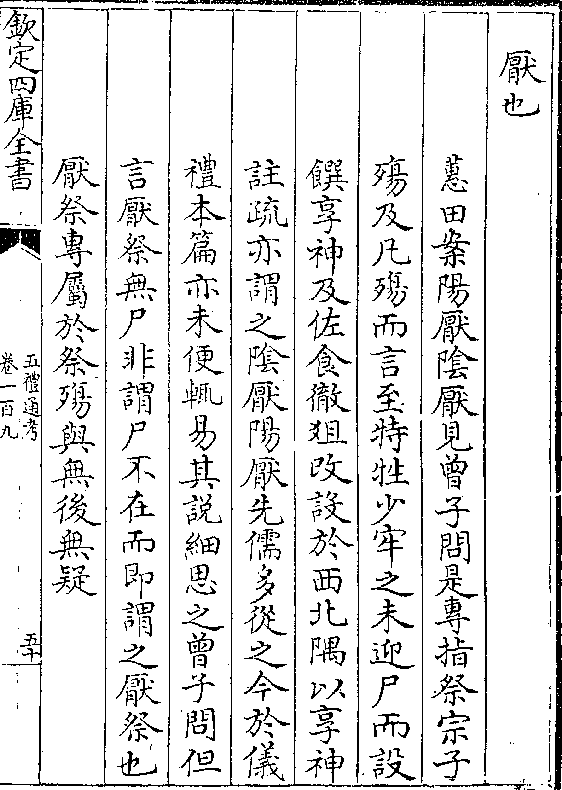 厭也
蕙田案陽厭陰厭見曾子問是專指祭宗子
殤及凡殤而言至特牲少牢之未迎尸而設
饌享神及佐食徹俎改設於西北隅以享神
註疏亦謂之陰厭陽厭先儒多從之今於儀
禮本篇亦未便輒易其説細思之曾子問但
言厭祭無尸非謂尸不在而即謂之厭祭也
厭祭專屬於祭殤與無後無疑
欽定四庫全書
五禮通考
卷一百九
五十